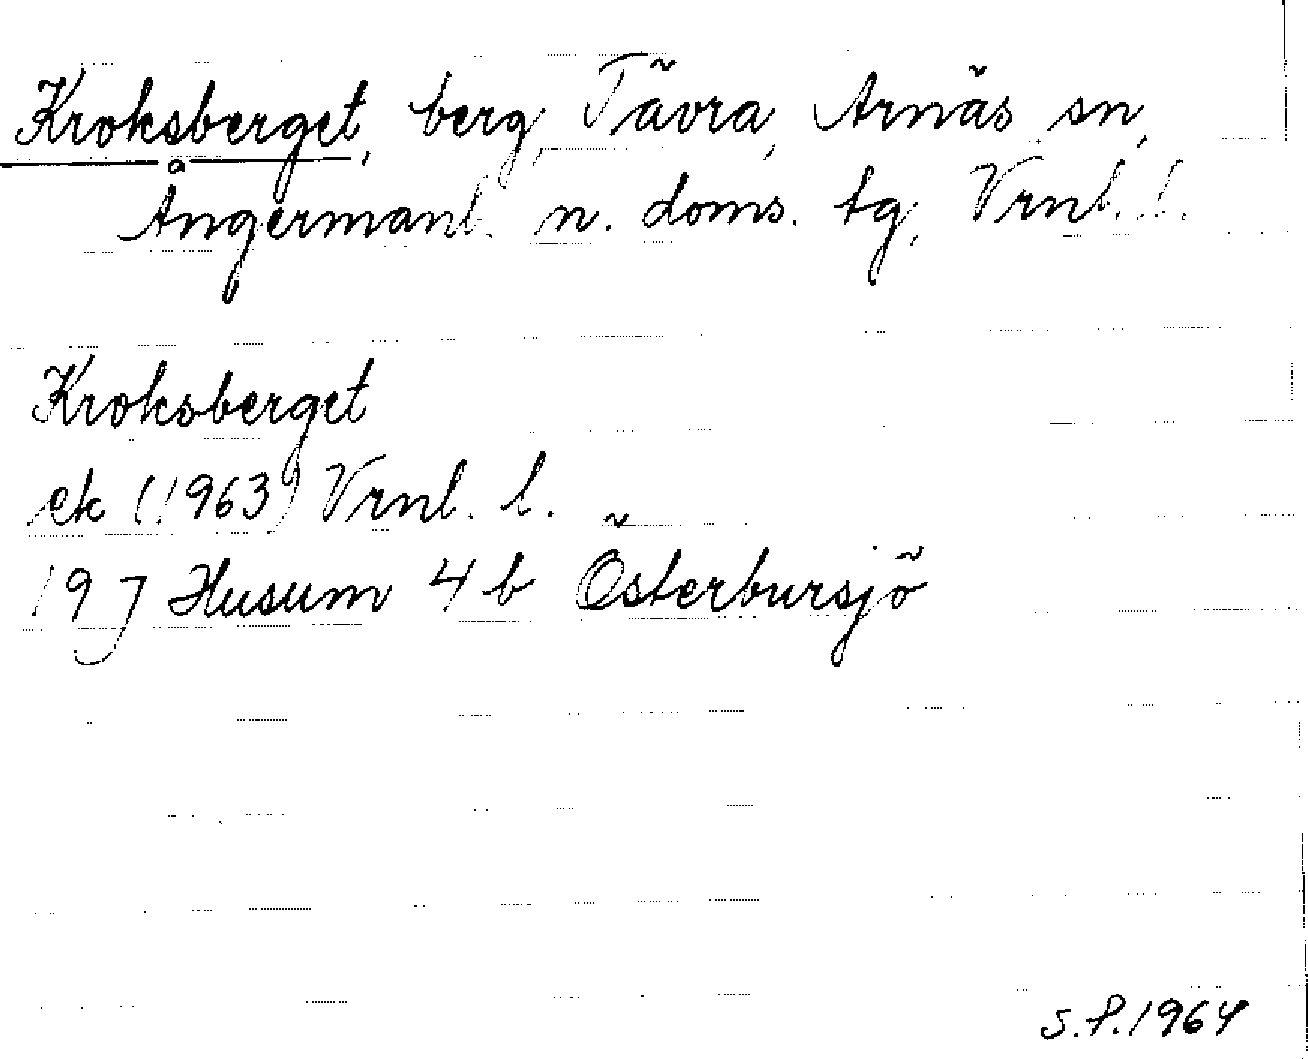 Kroksberget, berg, Tävra, Arnäs sn,
Ångermanl. n. doms. tg, Vrnl. l.
Kroksberget
ek (1963) Vrnl. l.
19 J Husum 4 b Östersbursjö
S.P. 1964